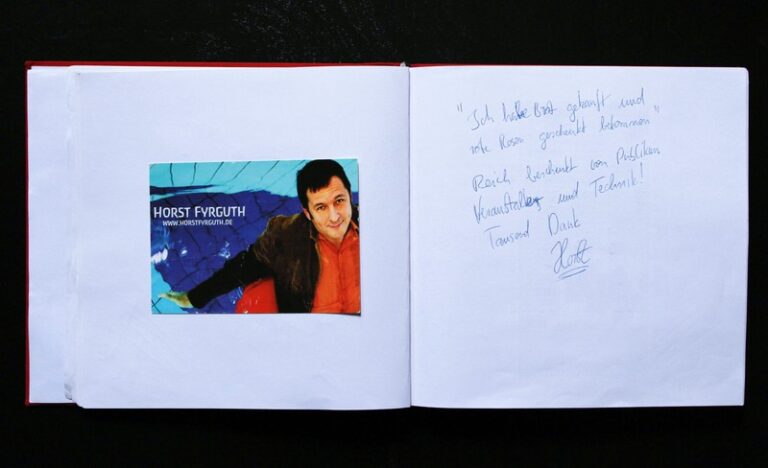 HORST FYRGUTH
WWW.HORSTFYRGUTH.DE
"Ich habe Brot gekauft und
rote Rosen geschenkt bekommen"
Reich beschenkt von Publikum
Veranstalter und Technik!
Tausend Dank
Horst